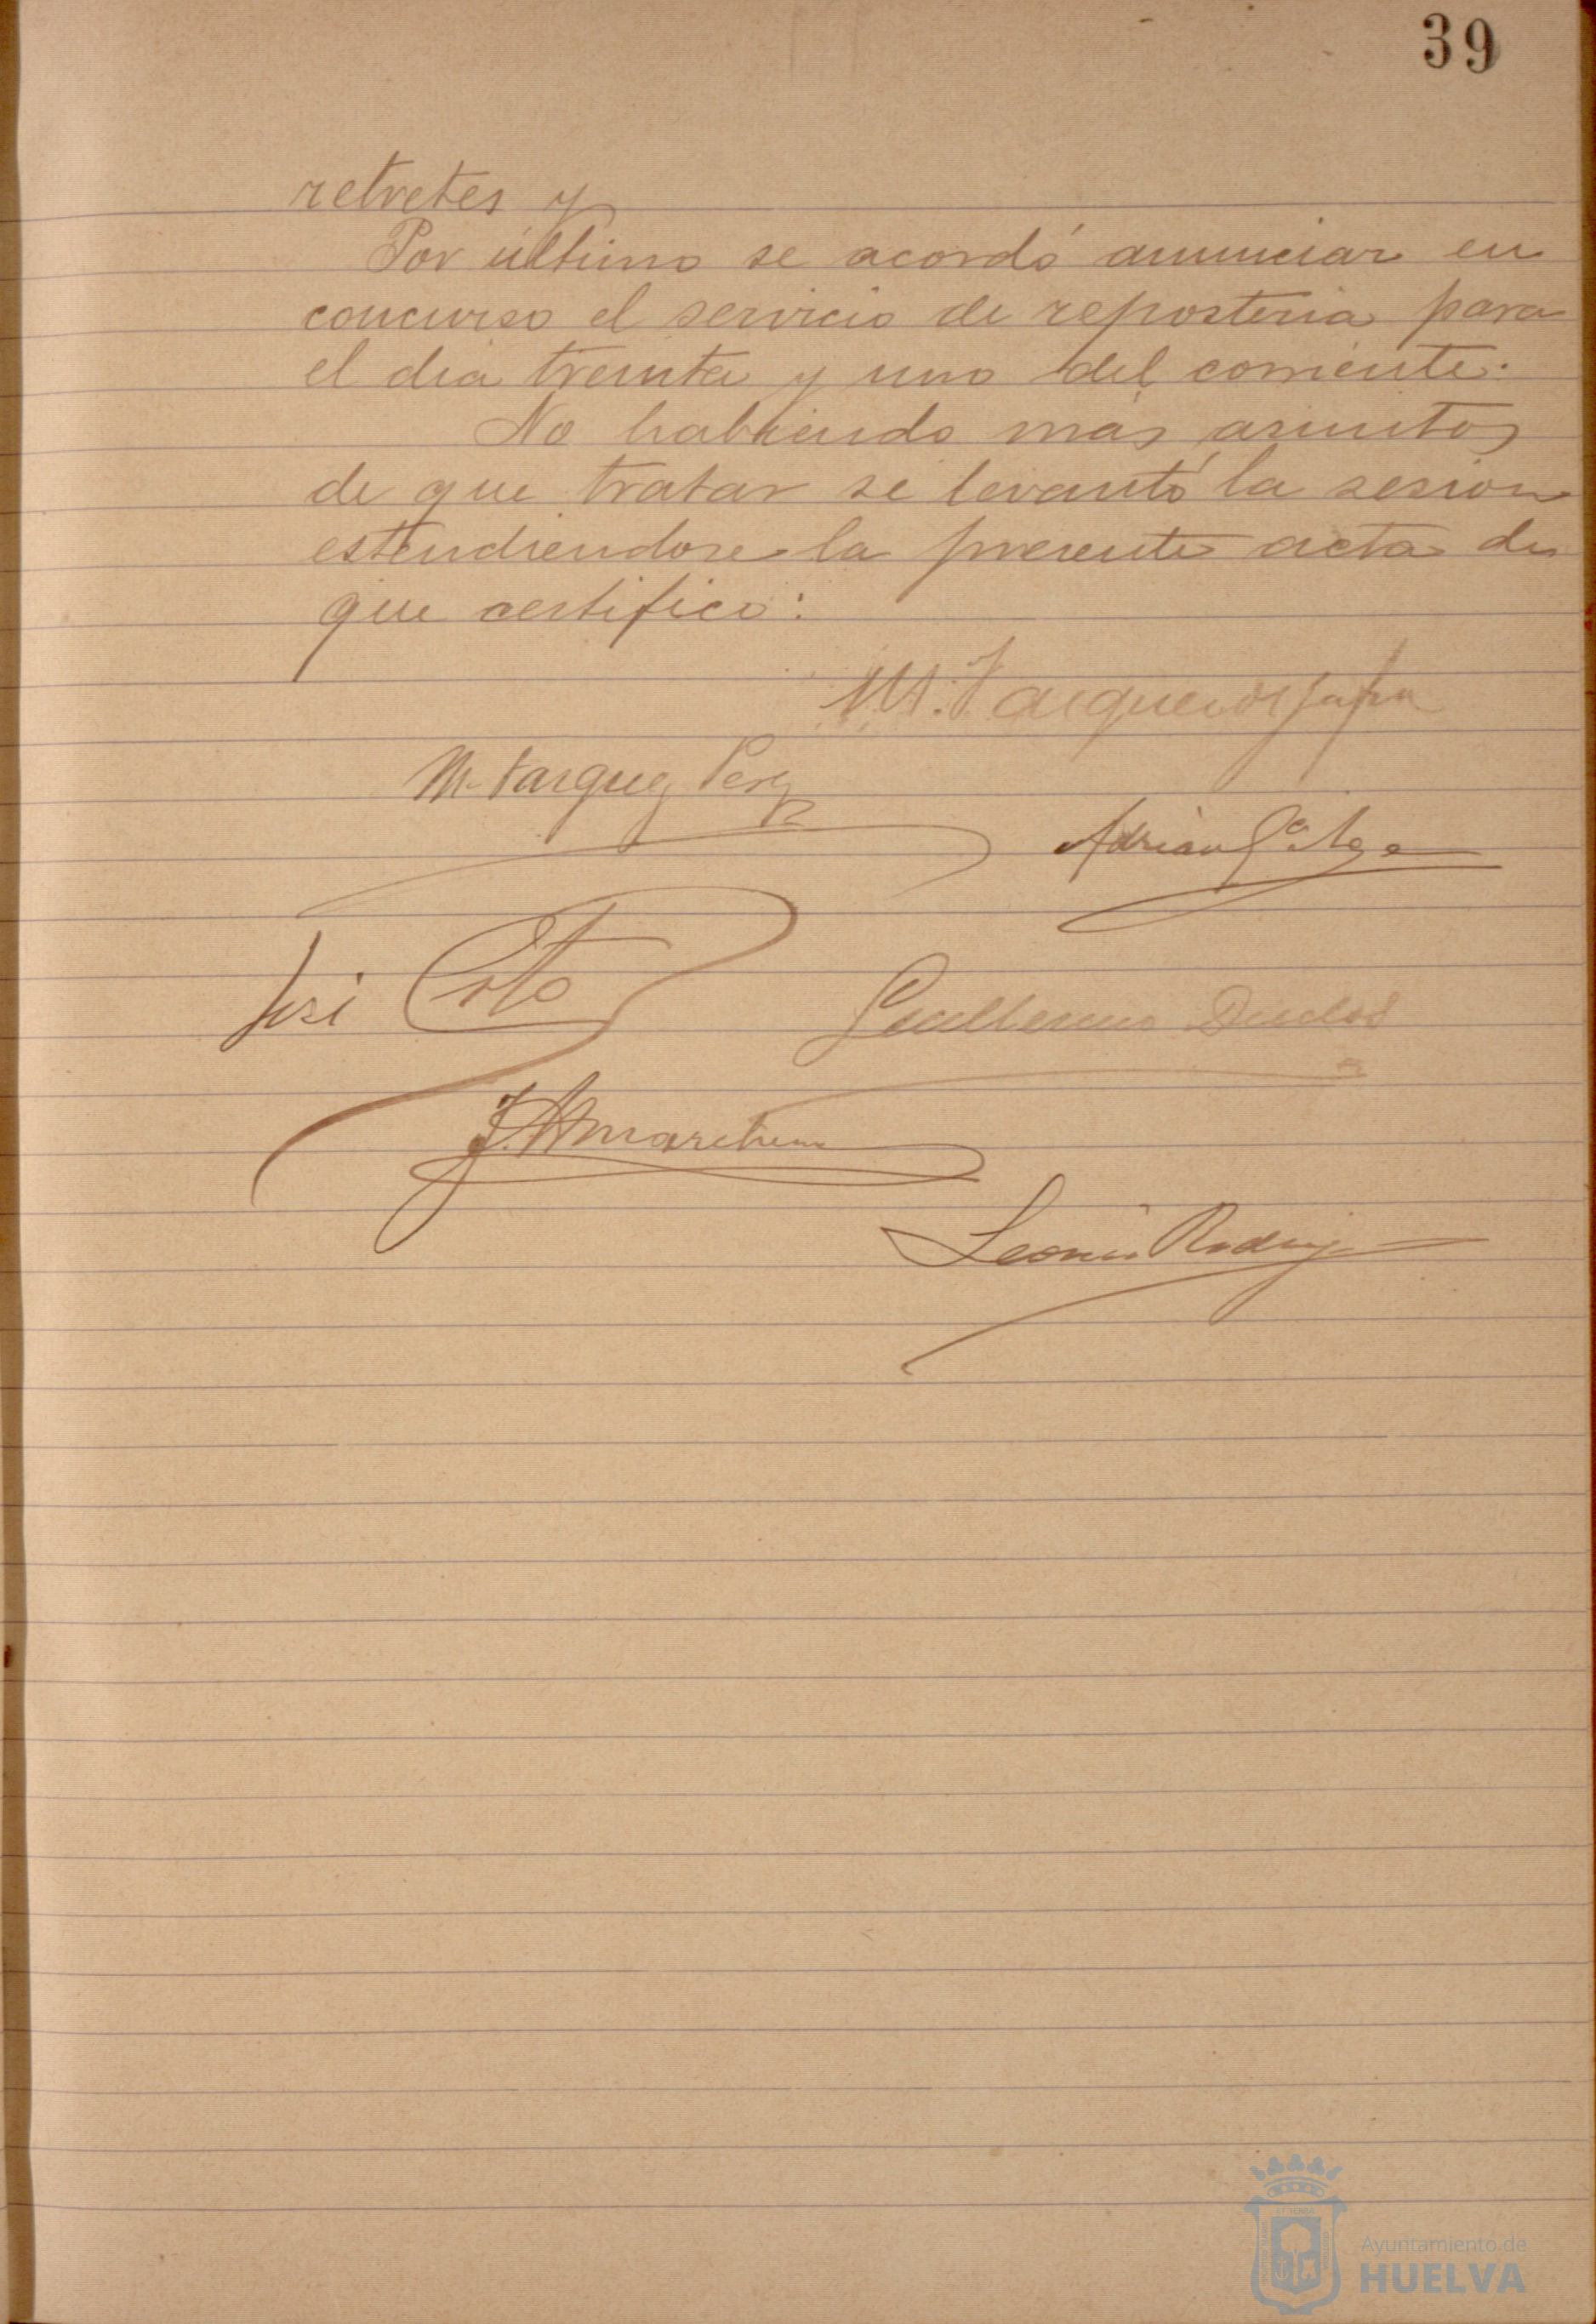 39
retretes y
Por último se acordó anunciar en
concurso el servicio de reposteria para
el dia treinta y uno del corriente.
No habiendo más asuntos
de que tratar se levantó la sesion
estendiendose la presente acta de
que certifico:
M. Vazquez de Zafra
M. Vazquez Perez
Adrian
José
Guillermo Duclos
Marchena
Rodrig
Ayuntamiento de
HUELVA